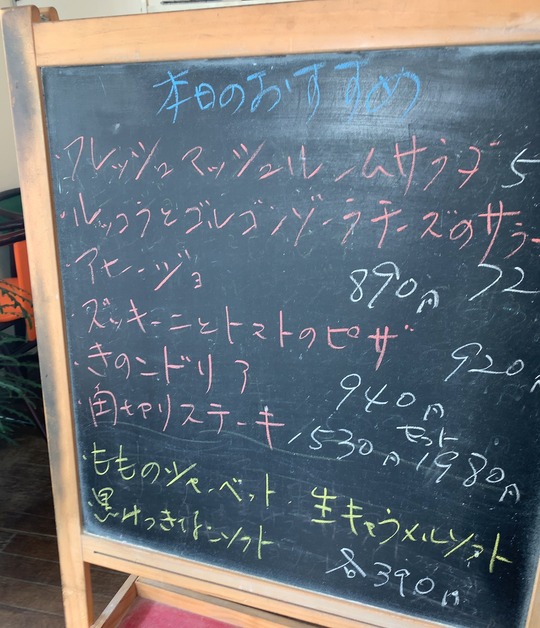 本日のおすすめ
・フレッシュマッシュルームサラダ 5
・ルッコラとゴルゴンゾーラチーズのサラ
・アヒージョ 890円 72
・ズッキーニとトマトのピザ 920円
・きのこドリア 940円
・角切りステーキ 1530円 セット 1980円
・もものシャーベット ・生キャラメルソフト
・黒みつきなこソフト 各390円